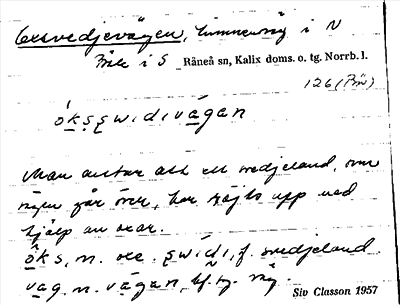 Oxsvedjevägen, timmerväg i N
Böle i S Råneå sn, Kalix doms. o. tg. Norrb. l.
126 (Bö)
ókṣẹwıdıvágan
Man antar att ett svedjeland, som
vägen går över, har röjts upp med
hjälp av oxar.
óks, m. oxe. ṣẹwídı, f. svedjeland.
vág. n. vágan, bf. sg. väg.
Siv Classon 1957